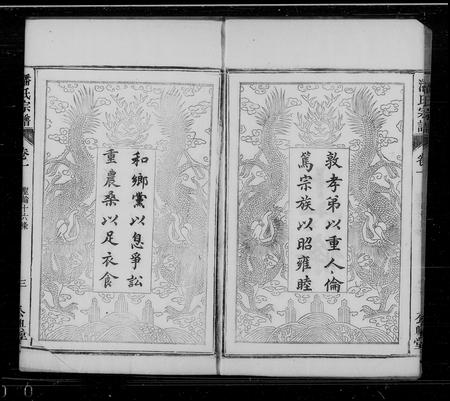 敦孝弟以重人倫
篤宗族以昭雍睦
和鄉黨以息爭訟
重農桑以足衣食
潘氏宗譜
卷一
聖諭十六條
三
潘氏宗譜
卷一